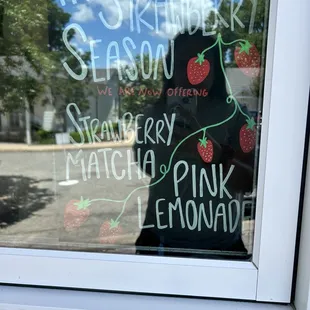 STRAWBERRY
SEASON
WE ARE NOW OFFERING
STRAWBERRY
MATCHA
PINK
LEMONAD